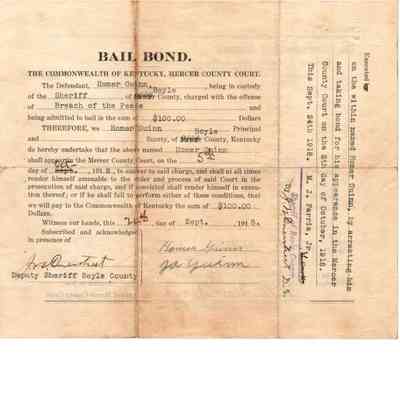 BAIL BOND.
THE COMMONWEALTH OF KENTUCKY, MERCER COUNTY COURT.
The Defendant, Homer Guinn, being in custody
of the Sheriff of Boyle County, charged with the offense
of Breach of the Peace and
being admitted to bail in the sum of $100.00 Dollars
THEREFORE, we Homar Guinn Principal
and Surety, of Boyle County, Kentucky
do hereby undertake that the above named Homer Guinn
shall appear in the Mercer County Court, on the 5th
day of Oct. 1918, to answer to said charge, and shall at all times
render himself amenable to the order and process of said Court in the
prosecution of said charge, and if convicted shall render himself in execu-
tion thereof; or if he shall fail to perform either of these conditions, that
we will pay to the Commonwealth of Kentucky the sum of $100.00
Dollars.
Witness our hands, this 24th day of Sept. 1918.
Subscribed and acknowledged
in presence of
Homer Guinn
Deputy Sheriff Boyle County
Executed by
on the within named Homer Guinn, by arresting him
and taking bond for his appearance in the Mercer
County Court on the 5th day of October, 1918.
This Sept. 24th 1918. M. J. Farris, Jr.